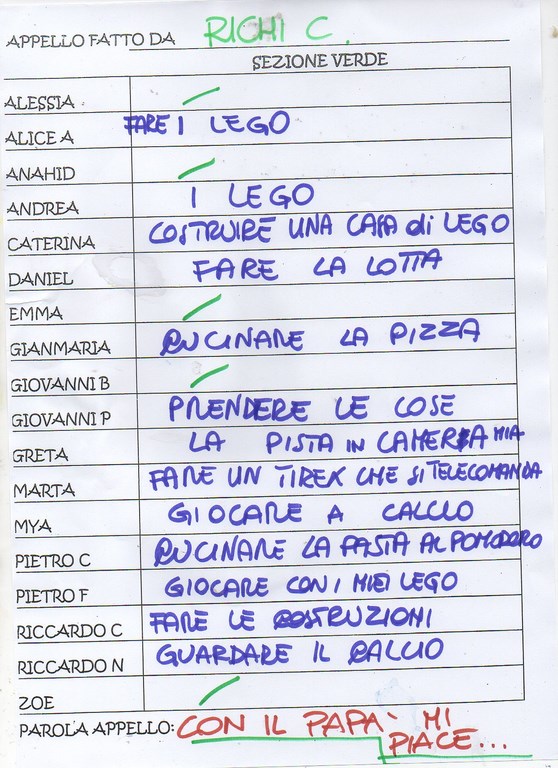 APPELLO FATTO DA RICHI C.
SEZIONE VERDE
ALESSIA
ALICE A FARE I LEGO
ANAHID
ANDREA I LEGO
CATERINA COSTRUIRE UNA CASA di LEGO
DANIEL FARE LA LOTTA
EMMA
GIANMARIA CUCINARE LA PIZZA
GIOVANNI B
GIOVANNI P PRENDERE LE COSE
GRETA LA PISTA IN CAMERA MIA
MARTA FARE UN TIREX CHE SI TELECOMANDA
MYA GIOCARE A CALCIO
PIETRO C CUCINARE LA PASTA AL POMODORO
PIETRO F GIOCARE CON I MIEI LEGO
RICCARDO C FARE LE COSTRUZIONI
RICCARDO N GUARDARE IL CALCIO
ZOE
PAROLA APPELLO: CON IL PAPA' MI
PIACE...